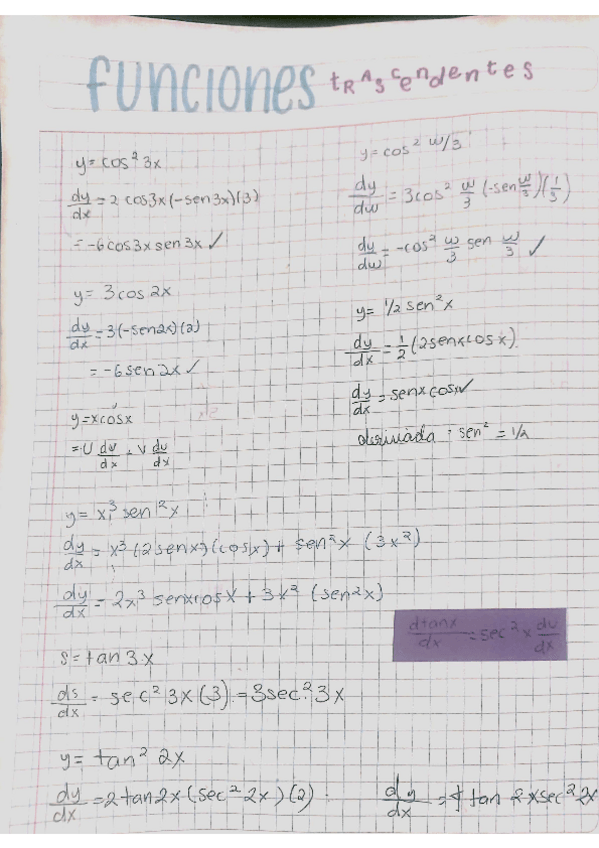 funciones trascendentes
y = cos² 3x
dy/dx = 2 cos3x (-sen3x)(3)
= -6cos3x sen3x ✓
y = 3cos2x
dy/dx = 3(-sen2x)(2)
= -6sen2x ✓
y = xcosx
= U dv/dx + V du/dx
y = cos² w/3
dy/dw = 3cos² w/3 (-sen w/3)(1/3)
dy/dw = -cos² w/3 sen w/3 ✓
y = 1/2 sen²x
dy/dx = 1/2 (2senxcosx)
dy/dx = senxcosx ✓
derivada : sen² = 1/2
y = x³ sen²x
dy/dx = x³ (2senx)(cosx) + sen²x (3x²)
dy/dx = 2x³ senxcosx + 3x² (sen2x)
dtanx/dx = sec² x du/dx
s = tan 3x
ds/dx = sec² 3x (3) = 3sec² 3x
y = tan² 2x
dy/dx = 2tan2x (sec² 2x)(2)
dy/dx = 4 tan 2xsec² 2x